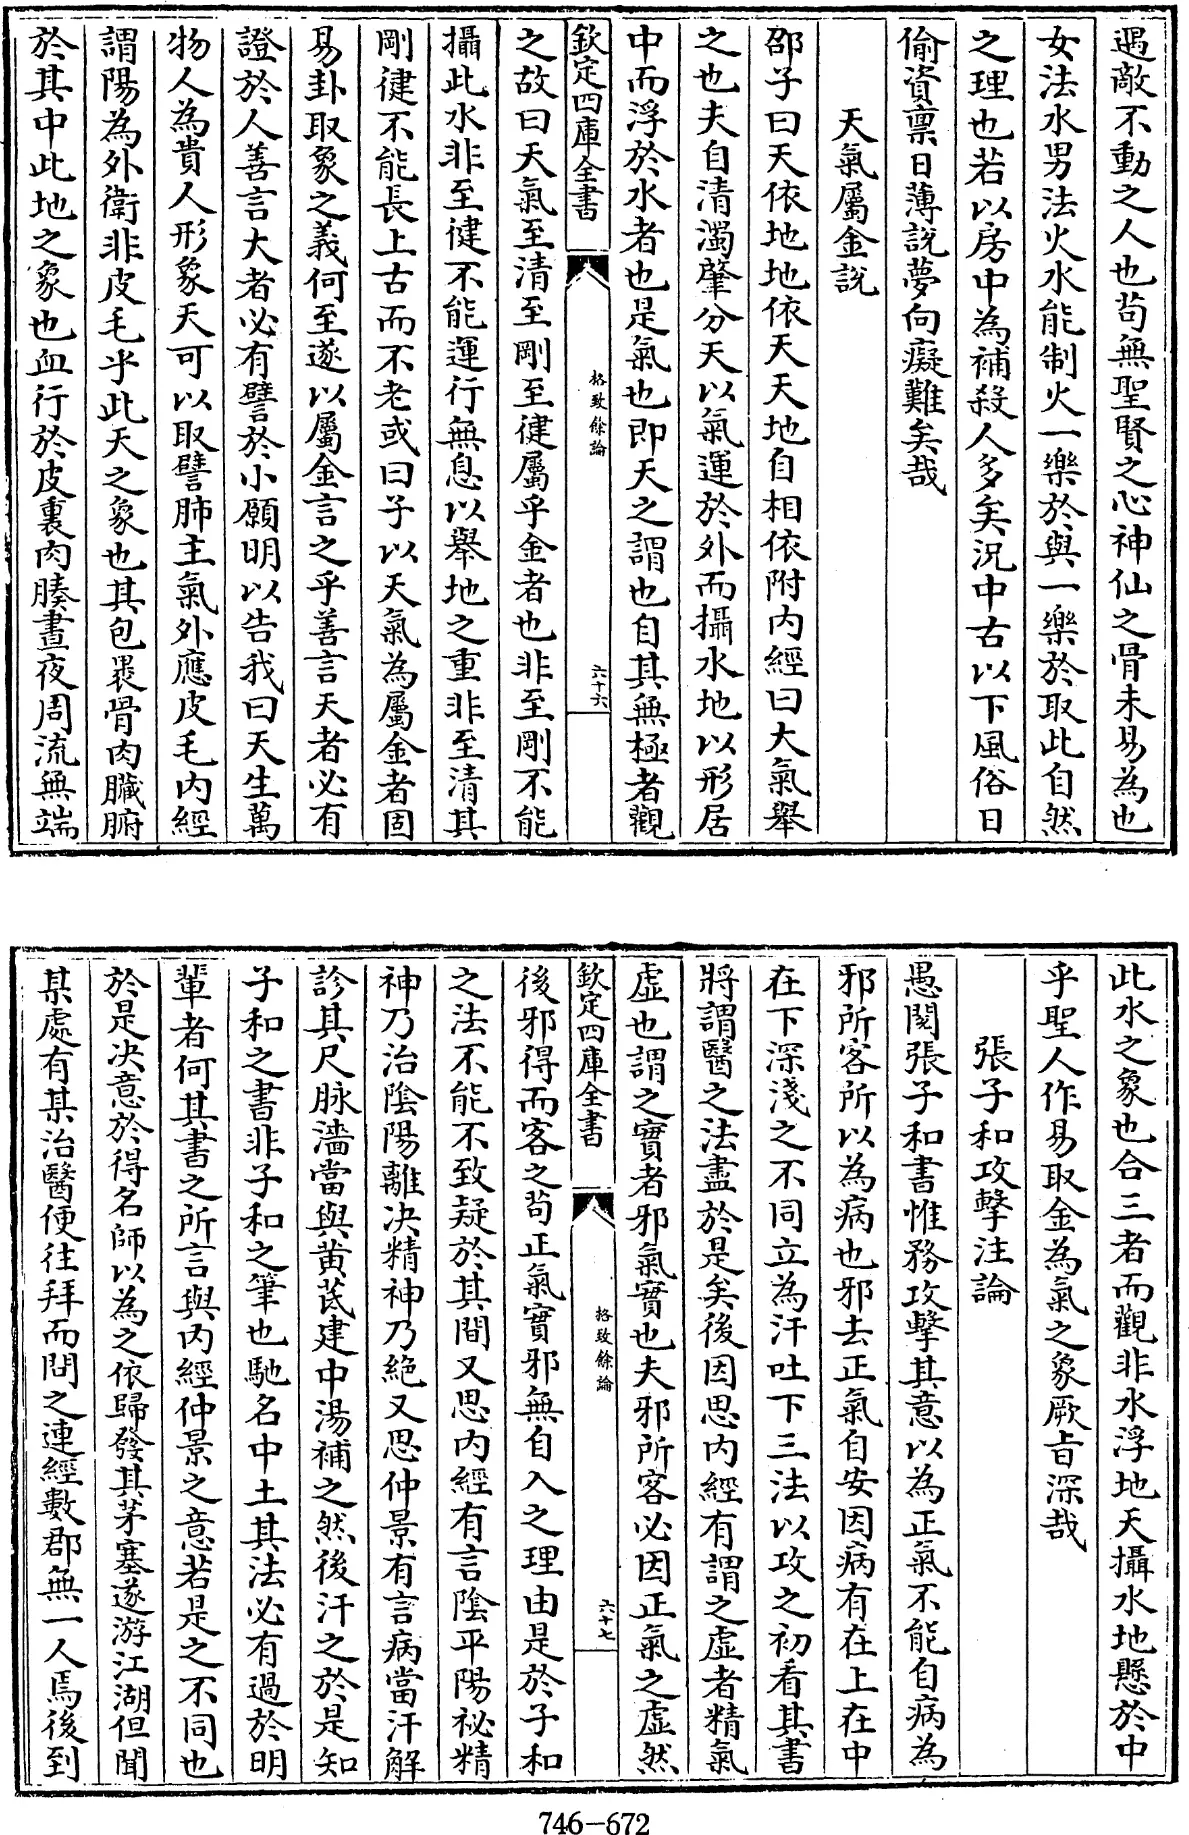 遇敵不動之人也茍無聖賢之心神仙之骨未易為也
女法水男法火水能制火一樂於與一樂於取此自然
之理也若以房中為補殺人多矣況中古以下風俗日
偷資禀日薄說夢向癡難矣哉
天氣屬金說
邵子曰天依地地依天天地自相依附内經曰大氣舉
之也夫自清濁肇分天以氣運於外而攝水地以形居
中而浮於水者也是氣也即天之謂也自其無極者觀
欽定四庫全書
格致餘論
六十六
之故曰天氣至清至剛至徤屬乎金者也非至剛不能
攝此水非至徤不能運行無息以舉地之重非至清其
剛徤不能長上古而不老或曰子以天氣為屬金者固
易卦取象之義何至遂以屬金言之乎善言天者必有
證於人善言大者必有譬於小願明以告我曰天生萬
物人為貴人形象天可以取譬肺主氣外應皮毛内經
謂陽為外衛非皮毛乎此天之象也其包裹骨肉臟腑
於其中此地之象也血行於皮裏肉腠晝夜周流無端
此水之象也合三者而觀非水浮地天攝水地懸於中
乎聖人作易取金為氣之象厥旨深哉
張子和攻擊注論
愚閱張子和書惟務攻擊其意以為正氣不能自病為
邪所客所以為病也邪去正氣自安因病有在上在中
在下深淺之不同立為汗吐下三法以攻之初看其書
將謂醫之法盡於是矣後因思内經有謂之虛者精氣
虛也謂之實者邪氣實也夫邪所客必因正氣之虛然
欽定四庫全書
格致餘論
六十七
後邪得而客之茍正氣實邪無自入之理由是於子和
之法不能不致疑於其間又思内經有言陰平陽祕精
神乃治陰陽離决精神乃絶又思仲景有言病當汗解
診其尺脉濇當與黄芪建中湯補之然後汗之於是知
子和之書非子和之筆也馳名中土其法必有過於明
輩者何其書之所言與内經仲景之意若是之不同也
於是决意於得名師以為之依歸發其茅塞遂游江湖但聞
某處有某治醫便往拜而問之連經數郡無一人焉後到
746-672